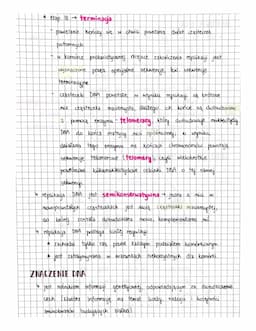 • etap III → terminacja
- powielanie kończy się w chwili powstania dwóch cząsteczek
potomnych
- w komórce prokariotycznej miejsce zakończenia replikacji jest
wyznaczone przez specjalne sekwencje, tzw. sekwencje
terminacyjne
- cząsteczki DNA powstałe w wyniku replikacji są krótsze
niż cząsteczki macierzyste, dlatego ich końce są
z pomocą enzymu - telomerazy, który
DNA do końca matrycy nici opóźnionej, w wyniku
działania tego enzymu na końcach chromosomów powstają
sekwencje telomerowe (telomery), czyli wielokrotnie
powtórzone odcinki DNA o tej samej
sekwencji
↳ replikacja DNA jest semikonserwatywna → jedna z nici w
nowopowstałych cząsteczkach jest nicią cząsteczki macierzystej,
do której została dobudowana nowa, komplementarna nić
↳ replikacja DNA podlega ścisłej regulacji:
• zachodzi tylko raz przed każdym podziałem komórkowym
• jest zatrzymywana w warunkach niekorzystnych dla komórki
ZNACZENIE DNA
↳ jest nośnikiem informacji genetycznej, odpowiadającym za dziedziczenie
cech (zawiera informację na temat liczby, rodzaju i kolejności
aminokwasów budujących białka)